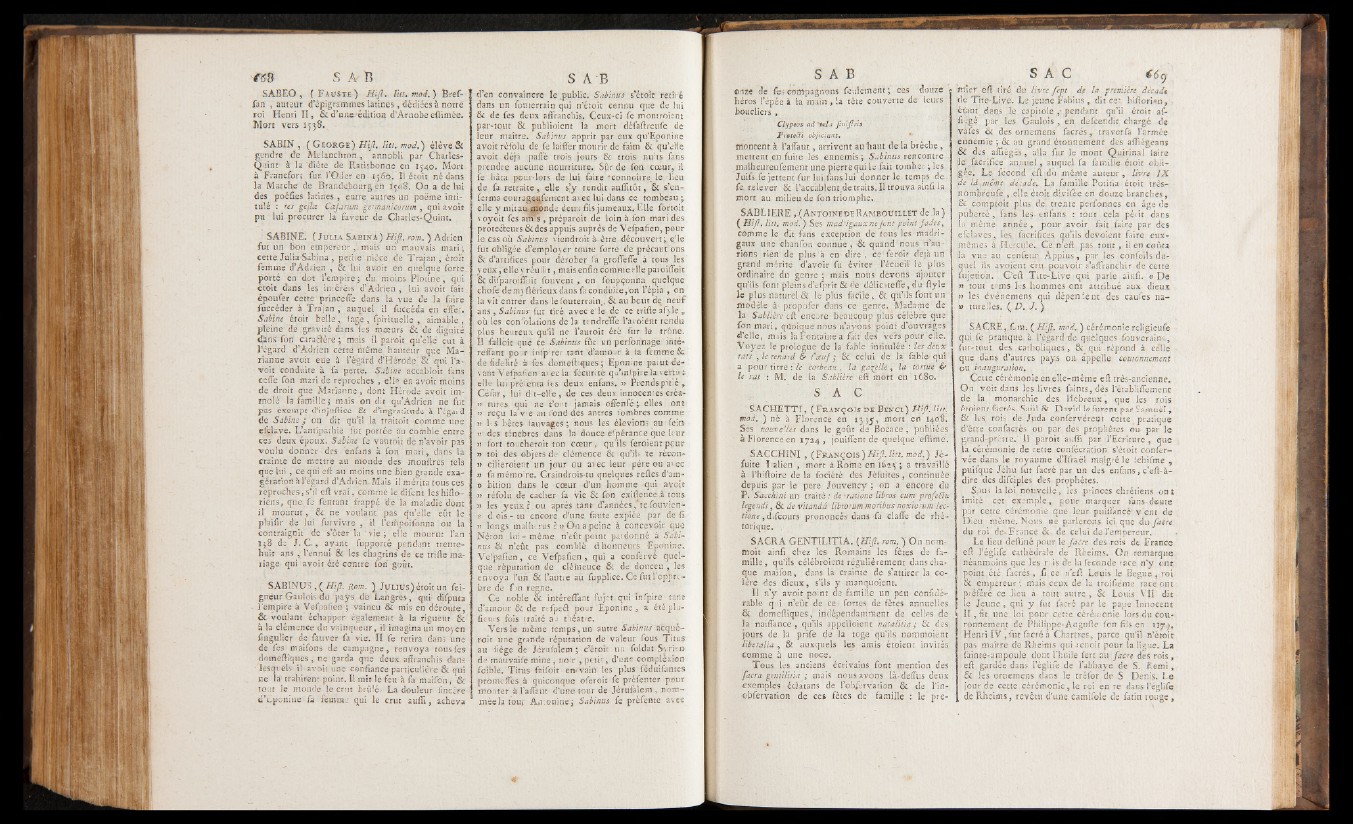 668 S A B
SABEO, (FAUSTE) Hist. litt. mod.) Bres-
san, auteur d'épigrammes latines, dédiées à notre
roi Henri II, & d'une édition d'Arnobe estimée.
Mort vers 1538.
SABIN, (GEORGE) Hist. litt. mod.) élève &
gendre de Melancthon, annobli par Charles-
Quint à la diète de Ratisbonne en 1540, Mort
à Francfort sur l'Oder en 1560. Il étoit né dans
la Marche de Brandebourg en 1508. On a de lui
des poésies latines, entre autres un poëme inti-
tulé : res gestæ Cæsarum germanicorum, qui avoit
pu lui procurer la faveur de Charles-Quint.
SABINE. (JULIA SABINA) Hist. rom.) Adrien
fut un bon empereur, mais un mauvais mari;
cette Julia Sabina, petite nièce de Trajan, étoit
femme d'Adrien, & lui avoit en quelque sorte
porté en dot l'empire; du moins Plotine, qui
étoit dans les intérêts d'Adrien, lui avoit fait
épouser cette princesse dans la vue de la faire
succéder à Trajan, auquel il succéda en effet.
Sabine étoit belle, sage, spirituelle, aimable,
pleine de gravité dans les mœurs & de dignité
dans son caractère; mais il paroît qu'elle eut à
l'égard d'Adrien cette même hauteur que Ma-
rianne avoit eue à l'égard d'Hérode & qui l'a-
voit conduite à sa perte. Sabine accabloit sans
cesse son mari de reproches, elle en avoit moins
de droit que Marianne, dont Hérode avoit im-
molé la famille; mais on dit qu'Adrien ne fut
pas exempt d'injustice & d'ingratitude à l'égard
de Sabine; on dit qu'il la traitoit comme une
esclave. L'antipathie fut portée au comble entre
ces deux époux. Sabine se vantoit de n'avoir pas
voulu donner des enfans à son mari, dans la
crainte de mettre au monde des monstres tels
que lui, ce qui est au moins une bien grande exa-
gération à l'égard d'Adrien. Mais il mérita tous ces
reproches, s'il est vrai, comme le disent les histo-
riens, que se sentant frappé de la maladie dont
il mourut, & ne voulant pas qu'elle eût le
plaisir de lui survivre, il l'empoisonna ou la
contraignit de s'ôter la vie; elle mourut l'an
138 de J. C., ayant supporté pendant trente-
huit ans, l'ennui & les chagrins de ce triste ma-
riage qui avoit été contre son goût.
SABINUS, (Hist. Rom.) JULIUS) étoit un sei-
gneur Gaulois du pays de Langres, qui disputa
l'empire à Vespasien; vaincu & mis en déroute,
& voulant échapper également à la rigueur &
à la clémence du vainqueur, il imagina un moyen
singulier de sauver sa vie. Il se retira dans une
de ses maisons de campagne, renvoya tous ses
domestiques, ne garda que deux affranchis dans
lesquels il avoit une confiance particulière & qui
ne la trahirent point. Il mit le feu à sa maison, &
tout le monde le crut brûlé. La douleur sincère
d'Eponine sa femme qui le crut aussi, acheva
S A B
d'en convaincre le public. Sabinus s'étoit retiré
dans un souterrain qui n'étoit connu que de lui
& de ses deux affranchis. Ceux-ci se montroient
par-tout & publioient la mort désastreuse de
leur maître. Sabinus apprit par eux qu'Eponine
avoit résolu de se laisser mourir de faim & qu'elle
avoit déjà passé trois jours & trois nuits sans
prendre aucune nourriture. Sûr de son cœur, il
se hâta pour-lors de lui faire connoître le lieu
de sa retraite, elle s'y rendit aussitôt, & s'en-
ferma courageusement avec lui dans ce tombeau;
elle y mit au monde deux fils jumeaux. Elle
voyoit ses amis, préparoit de loin à son mari des
protecteurs & des appuis auprès de Vespasien, pour
le cas où Sabinus viendroit à être découvert; elle
fut obligée d'employer toute sorte de précautions
& d'artifices pour dérober sa grossesse à tous les
yeux, elle y réussit, mais enfin comme elle paroissoit
& disparoissoit souvent, on soupçonna quelque
chose de mystérieux dans sa conduite, on l'épia, on
la vit entrer dans le souterrain, & au bout de neuf
ans, Sabinus fut tiré avec elle de ce triste asyle,
où les consolations de la tendresse l'avoient rendu
plus heureux qu'il ne l'auroit été sur le trône.
Il falloit que ce Sabinus fût un personnage inté-
ressant pour inspirer tant d'amour à sa femme &
de fidélité à ses domestiques; Eponine parut de-
vant Vespasien avec la sécurité qu'inspire la vertu;
elle lui présenta ses deux enfans. « Prends pitié,
César, lui dit-elle, de ces deux innocentes créa-
» tures qui ne t'ont jamais offensé; elles ont
» reçu la vie au fond des antres sombres comme
» les bêtes sauvages; nous les élevions au sein
» des ténèbres dans la douce espérance que leur
» sort toucheroit ton cœur, qu'ils seroient pour
» toi des objets de clémence & qu'ils te récon-
» cilieroient un jour ou avec leur père ou avec
» sa mémoire. Craindrois-tu quelques restes d'am-
» bition dans le cœur d'un homme qui avoit
» résolu de cacher sa vie & son existence à tous
» les yeux? ou après tant d'années, te souvien-
» drois-tu encore d'une faute expiée par de si
» longs malheurs? » On a peine à concevoir que
Néron lui-même n'eût point pardonné à Sabi-
nus & n'eût pas comblé d'honneurs Eponine.
Vespasien, ce Vespasien, qui a conservé quel-
que réputation de clémence & de douceur, les
envoya l'un & l'autre au supplice. Ce fut l'oppro-
bre de son regne.
Ce noble & intéressant sujet qui inspire tant
d'amour & de respect pour Eponine, a été plu-
sieurs fois traité au théatre.
Vers le même temps, un autre Sabinus acqué-
roit une grande réputation de valeur sous Titus
au siège de Jérusalem; c'étoit un soldat Syrien
de mauvaise mine, noir, petit, d'une complexion
foible. Titus faisoit en vain les plus séduisantes
promesses à quiconque oseroit se présenter pour
monter à l'assaut d'une tour de Jérusalem, nom-
mée la tour Antonine; Sabinus se présente avec
S A B
onze de ses compagnons seulement; ces douze
héros l'épée à la main, la tête couverte de leurs
boucliers,
Clypeos ad tela sinistris
Protecti objiciunt.
montent à l'assaut, arrivent au haut de la brèche,
mettent en fuite les ennemis; Sabinus rencontre
malheureusement une pierre qui le fait tomber; les
Juifs se jettent sur lui sans lui donner le temps de
se relever & l'accablent de traits. Il trouva ainsi la
mort au milieu de son triomphe.
SABLIERE, (ANTOINE DE RAMBOUILLET de la)
(Hist. litt. mod.) Ses madrigaux ne sont point fades,
comme le dit sans exception de tous les madri-
gaux une chanson connue, & quand nous n'au-
rions rien de plus à en dire, ce seroit déjà un
grand mérite d'avoir su éviter l'écueil le plus
ordinaire du genre; mais nous devons ajouter
qu'ils sont pleins d'esprit & de délicatesse, du style
le plus naturel & le plus facile, & qu'ils sont un
modèle à proposer dans ce genre. Madame de
la Sablière est encore beaucoup plus célèbre que
son mari, quoique nous n'ayons point d'ouvrages
d'elle, mais la Fontaine a fait des vers pour elle.
Voyez le prologue de la fable intitulée : les deux
rats, le renard & l'œuf; & celui de la fable qui
a pour titre : le corbeau, la gazelle, la tortue &
le rat : M. de la Sablière est mort en 1680.
S A C
SACHETTI, (FRANÇOIS DE BENCI) Hist. litt.
mod.) né à Florence en 1335, mort en 1408.
Ses nouvelles dans le goût de Bocace, publiées
à Florence en 1724, jouissent de quelque estime.
SACCHINI, (FRANÇOIS) Hist. litt. mod.) Jé-
suite Italien, mort à Rome en 1625; a travaillé
à l'histoire de la société des Jésuites, continuée
depuis par le père Jouvency; on a encore du
P. Sacchini un traité : de ratione libros cum profectu
legendi, & de vitandâ librorum moribus noxiorum lec-
tione, discours prononcés dans sa classe de rhé-
torique.
SACRA GENTILITIA. (Hist. rom.) On nom-
moit ainsi chez les Romains les fêtes de fa-
mille, qu'ils célébroient régulièrement dans cha-
que maison, dans la crainte de s'attirer la co-
lère des dieux, s'ils y manquoient.
Il n'y avoit point de famille un peu considé-
rable qui n'eût de ces sortes de fêtes annuelles
& domestiques, indépendamment de celles de
la naissance, qu'ils appelloient natalitia; & des
jours de la prise de la toge qu'ils nommoient
liberalia, & auxquels les amis étoient invités
comme à une noce.
Tous les anciens écrivains font mention des
sacra gentilitia; mais nous avons là-dessus deux
exemples éclatans de l'observation & de l'in-
observation de ces fêtes de famille : le pre-
S A C 669
mier est tiré du livre sept de la première décade
de Tite-Live. Le jeune Fabius, dit cet historien,
étant dans le capitole, pendant qu'il étoit as-
siégé par les Gaulois, en descendit chargé de
vases & des ornemens sacrés, traversa l'armée
ennemie; & au grand étonnement des assiégeans
& des assiégés, alla sur le mont Quirinal faire
le sacrifice annuel, auquel sa famille étoit obli-
gée. Le second est du même auteur, livre IX
de la même décade. La famille Potitia étoit très-
nombreuse, elle étoit divisée en douze branches,
& comptoit plus de trente personnes en âge de
puberté, sans les enfans : tout cela périt dans
la même année, pour avoir fait faire par des
esclaves, les sacrifices qu'ils devoient faire eux-
mêmes à Hercule. Ce n'est pas tout, il en coûta
la vue au censeur Appius, par les conseils du-
quel ils avoient cru pouvoir s'affranchir de cette
sujétion. C'est Tite-Live qui parle ainsi. « De
» tout tems les hommes ont attribué aux dieux
» les événemens qui dépendent des causes na-
» turelles. (D. J.)
SACRE, s.m. (Hist. mod.) cérémonie religieuse
qui se pratique à l'égard de quelques souverains,
sur-tout des catholiques, & qui répond à celle
que dans d'autres pays on appelle couronnement
ou inauguration.
Cette cérémonie en elle-même est très-ancienne.
On voit dans les livres saints, dès l'établissement
de la monarchie des Hébreux, que les rois
étoient sacrés. Saül & David le furent par Samuel,
& les rois de Juda conservèrent cette pratique
d'être consacrés ou par des prophètes ou par le
grand-prêtre. Il paroît aussi par l'Ecriture, que
la cérémonie de cette consécration s'étoit conser-
vée dans le royaume d'Israël malgré le schisme,
puisque Jéhu fut sacré par un des enfans, c'est-à-
dire des disciples des prophètes.
Sous la loi nouvelle, les princes chrétiens ont
imité cet exemple, pour marquer sans-doute
par cette cérémonie que leur puissance vient de
Dieu même. Nous ne parlerons ici que du sacre
du roi de France & de celui de l'empereur.
Le lieu destiné pour le sacre des rois de France
est l'église cathédrale de Rheims. On remarque
néanmoins que les rois de la seconde race n'y ont
point été sacrés, si ce n'est Louis le Begue, roi
& empereur; mais ceux de la troisième race ont
préféré ce lieu à tout autre, & Louis VII dit
le Jeune, qui y fut sacré par le pape Innocent
II, fit une loi pour cette cérémonie lors du cou-
ronnement de Philippe-Auguste son fils en 1179.
Henri IV, fut sacré à Chartres, parce qu'il n'étoit
pas maître de Rheims qui tenoit pour la ligue. La
sainte-ampoule dont l'huile sert au sacre des rois,
est gardée dans l'église de l'abbaye de S. Remi,
& les ornemens dans le trésor de S Denis. Le
jour de cette cérémonie, le roi entre dans l'église
de Rheims, revêtu d'une camisole de satin rouge,